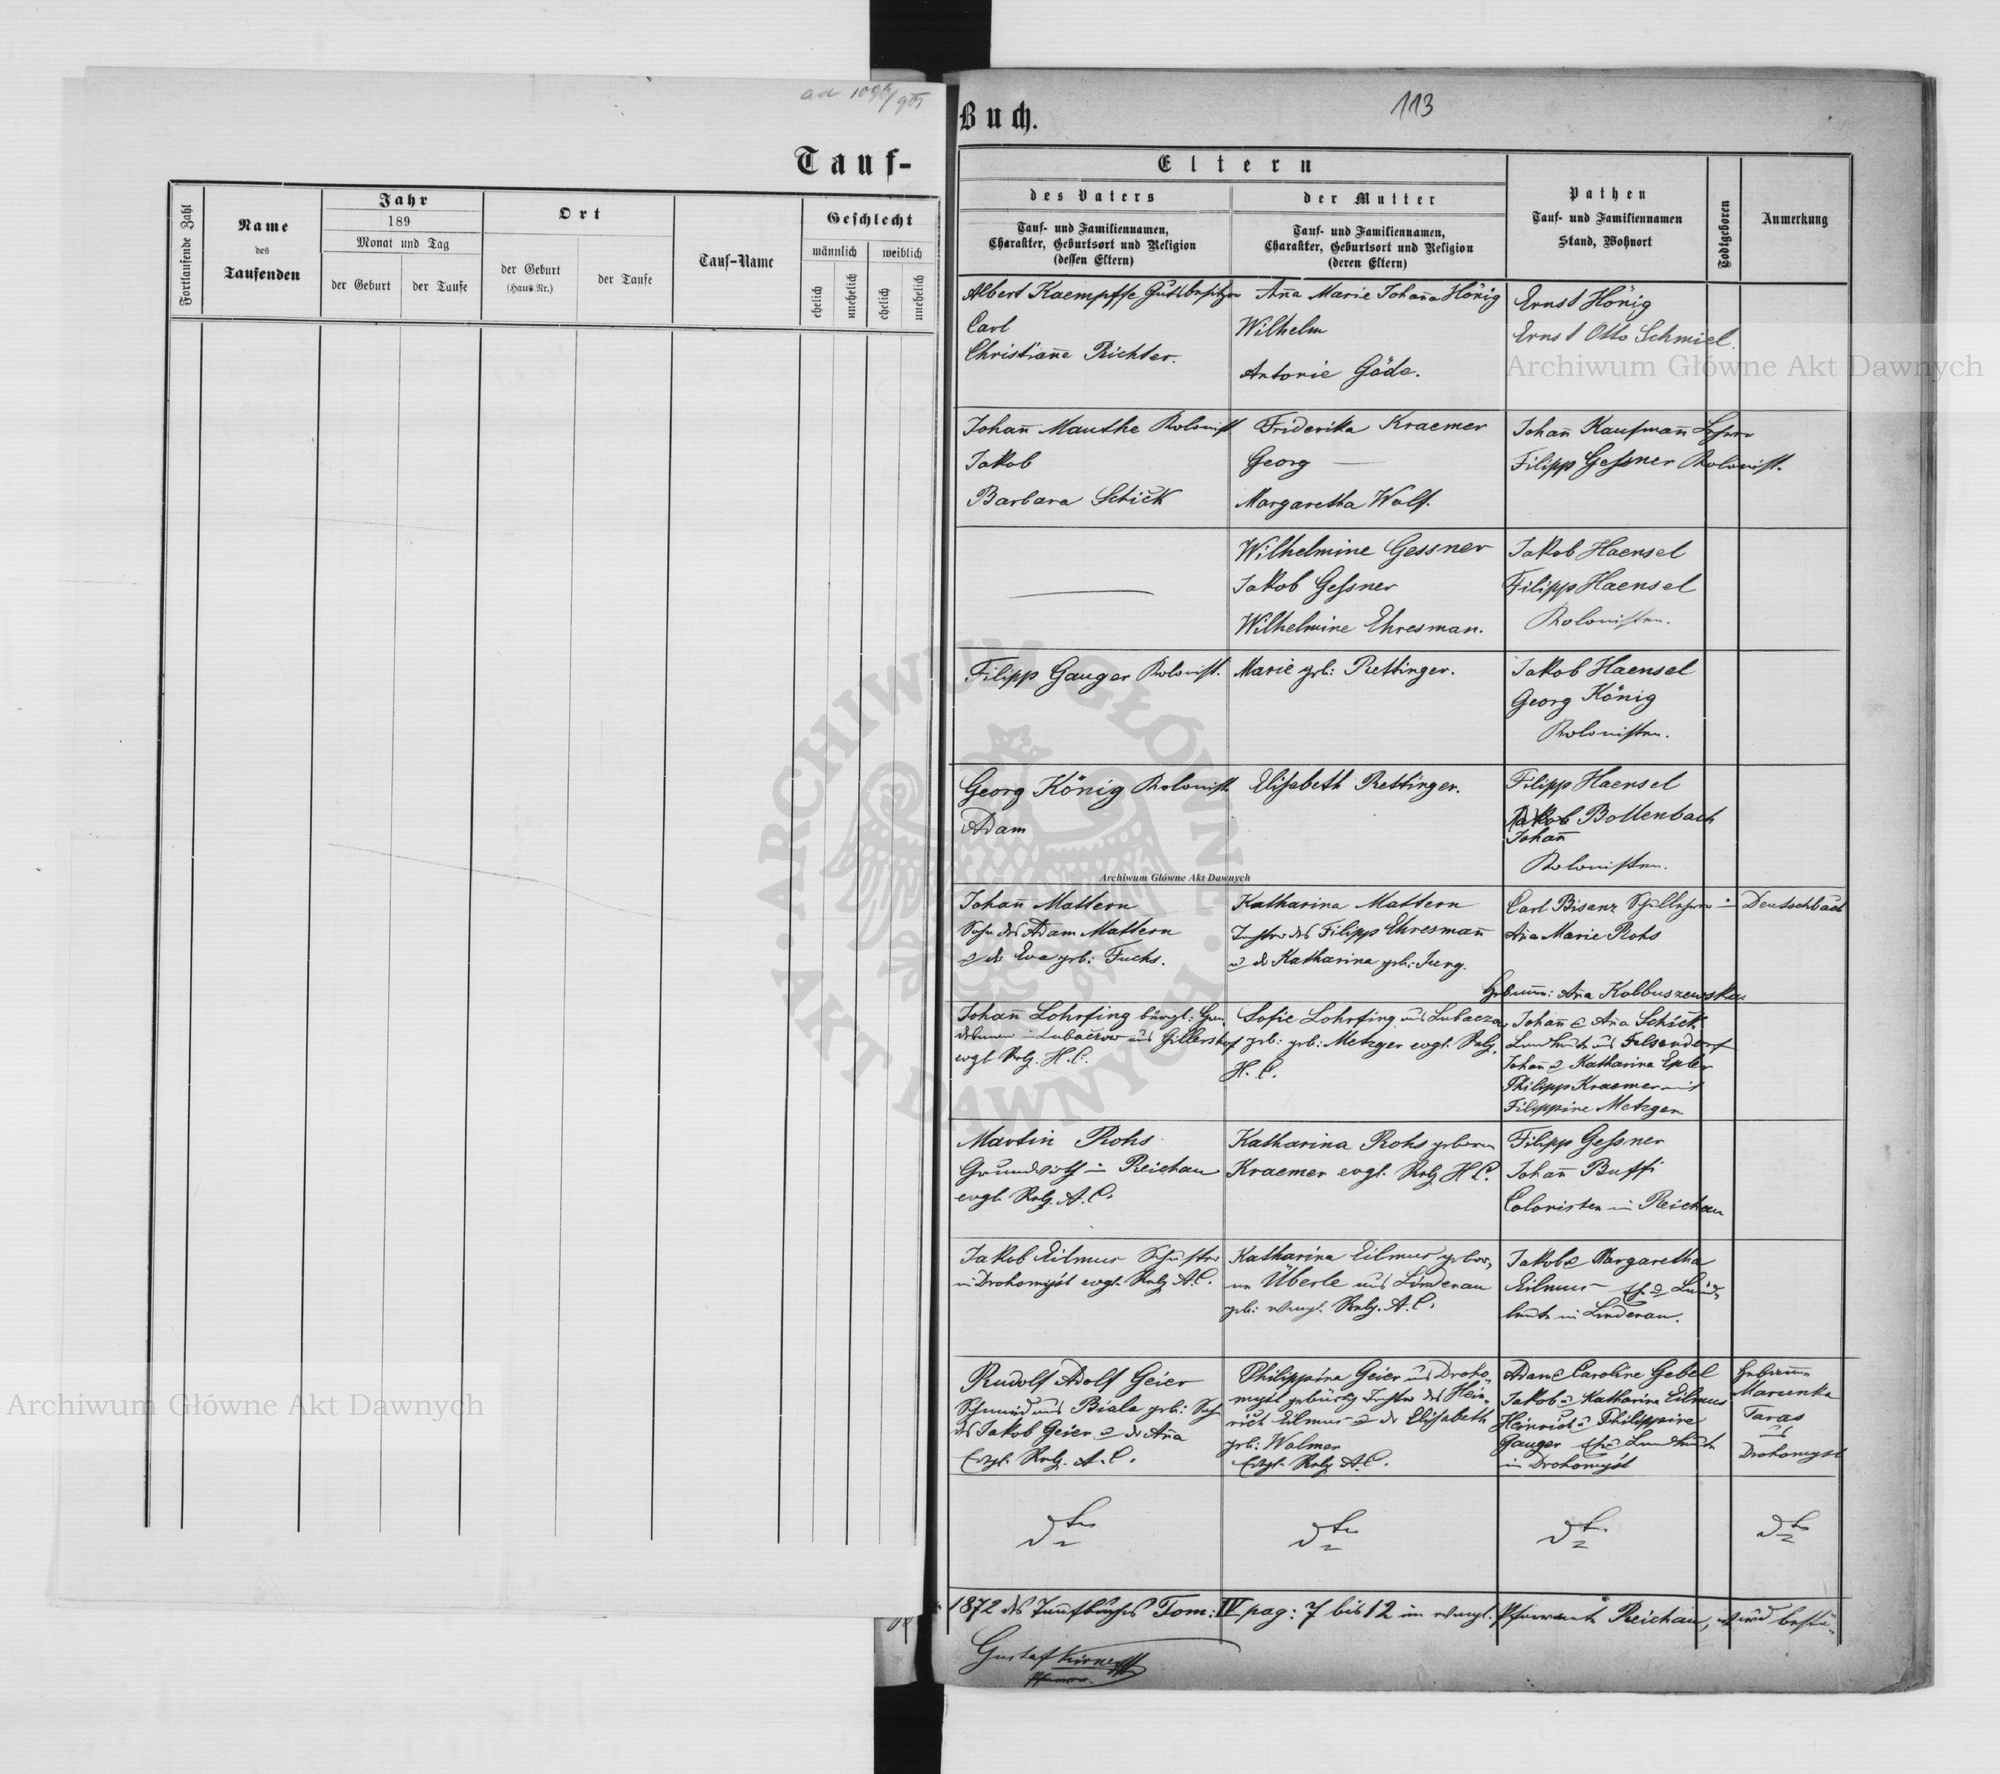 ad
Tauf-
Fortlaufende Zahl
Name
des
Taufenden
Jahr
189
Monat und Tag
der Geburt
der Taufe
Ort
der Geburt
(Haus-Nr.)
der Taufe
Tauf-Name
Geschlecht
männlich
weiblich
ehelich
unehelich
ehelich
unehelich
Buch.
113
Eltern
des Vaters
Tauf- und Familiennamen,
Charakter, Geburtsort und Religion
(dessen Eltern)
der Mutter
Tauf- und Familiennamen,
Charakter, Geburtsort und Religion
(deren Eltern)
Pathen
Tauf- und Familiennamen
Stand, Wohnort
Todtgeboren
Anmerkung
Albert Kaempffe Gutsbesitzer
Carl
Christiañe Richter.
Aña Marie Johaña Hönig
Wilhelm
Antonie Göde.
Ernst Hönig
Ernst Otto Schmiel.
Johañ Mauthe Kolonist
Jakob
Barbara Schick
Friderika Kraemer
Georg —
Margaretha Wolf.
Johañ Kaufmañ Lehrer
Filipp Geßner Kolonist.
Wilhelmine Gessner
Jakob Geßner
Wilhelmine Ehresman.
Jakob Haensel
Filipp Haensel
Kolonisten.
Filipp Gauger Kolonist.
Marie geb: Rettinger.
Jakob Haensel
Georg König
Kolonisten.
Georg König Kolonist.
Adam
Elisabeth Rettinger.
Filipp Haensel
Jakob Bollenbach
Johañ
Kolonisten.
Johañ Mattern
Sohn des Adam Mattern
u der Eva geb: Fuchs.
Katharina Mattern
Tochter des Filipp Ehresmañ
u der Katharina geb: Jung.
Carl Bisanz Schullehrer in
Aña Marie Rohs
Hebamm: Aña Kobbuszewska
Deutschbach
Johañ Lohrfing bürgl:
in Lubaczow aus Gillershof
evgl. Relg. H.C.
Sofie Lohrfing aus Lubaczow
geb: geb: Metzger evgl. Relg.
H.C.
Johañ u Aña Schick
Landleute aus Felsendorf
Johañ u Katharina Epler
Philipp Kraemer mit
Filippine Metzger
Martin Rohs
Grundwirth in Reichau
evgl. Relg. A.C.
Katharina Rohs geborene
Kraemer evgl. Relg H.C.
Filipp Geßner
Johañ Buffi
Colonisten in Reichau
Jakob Eilmus Schuster
in Drohomyśl evgl. Relg A.C.
Katharina Eilmus gebor-
ne Überle aus Lindenau
geb: evangl. Relg. A.C.
Jakob u Margaretha
Eilmus Land-
leute in Lindenau.
Rudolf Adolf Geier
Schmied aus Biala geb: Sohn
des Jakob Geier u der Aña
Evgl. Relg. A.C.
Philippina Geier aus Droho-
myśl gebürtig Tochter des Hein-
rich Eilmus u der Elisabeth
geb: Walmer
Evgl. Relg A.C.
Adam u Caroline Gebel
Jakob u Katharina Eilmus
Heinrich u Philippine
Gauger Landleute
in Drohomyśl
Hebamm
Marunka
Taras
aus
Drohomyśl
dto
dto
dto
dto
1872 des Taufbuches Tom: IV pag: 7 bis 12 im evangl. Pfarramte Reichau, wird bestä-
Gustaf
Pfarrer.
Archiwum Główne Akt Dawnych
Archiwum Główne Akt Dawnych
Archiwum Główne Akt Dawnych
ARCHIWUM GŁÓWNE AKT DAWNYCH